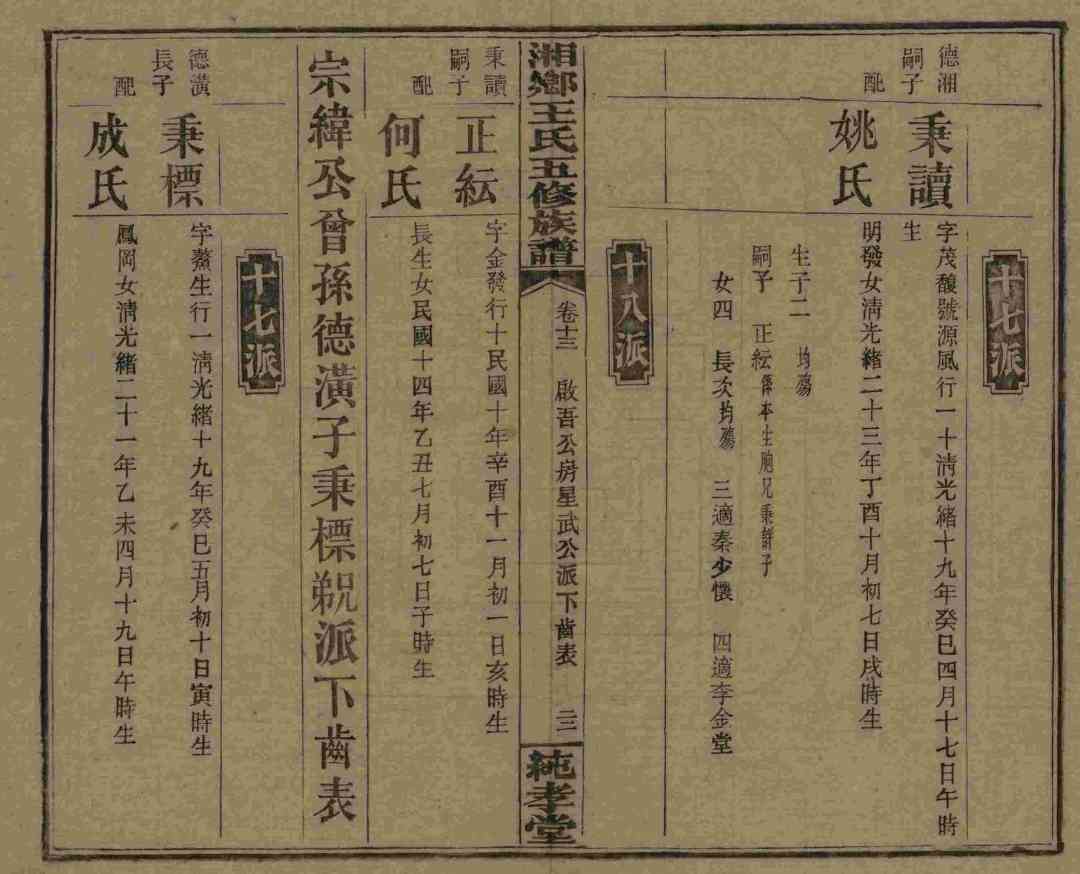 十七派
德湘
嗣子
秉讀
字茂馥號源風行一十淸光緒十九年癸巳四月十七日午時
生
配
姚氏
明發女淸光緒二十三年丁酉十月初七日戌時生
生子二　均殤
嗣子　正紜係本生胞兄秉
子
女四　長次均殤　三適秦少懷　四適李金堂
十八派
湘鄉王氏五修族譜
卷十三　啟吾公房星武公派下齒表　二二
純孝堂
秉讀
嗣子
正紜
字金發行十民國十年辛酉十一月初一日亥時生
配
何氏
長生女民國十四年乙丑七月初七日子時生
宗緯公曾孫德潢子秉標
派下齒表
十七派
德潢
長子
秉標
字鰲生行一淸光緒十九年癸巳五月初十日寅時生
配
成氏
鳳岡女淸光緒二十一年乙未四月十九日午時生